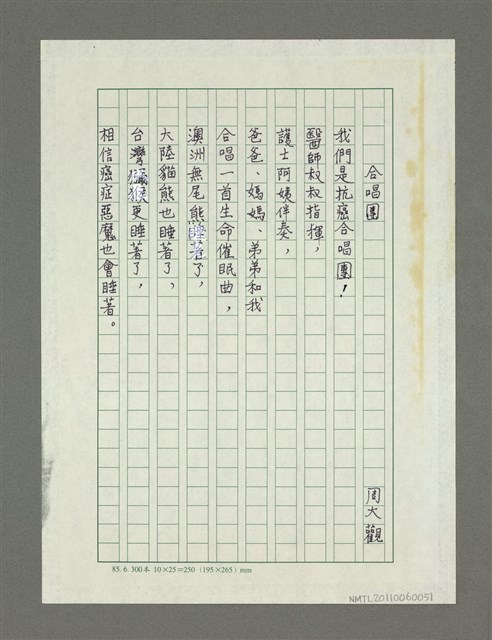 合唱團
周大觀
我們是抗癌合唱團！
醫師叔叔指揮，
護士阿姨伴奏，
爸爸、媽媽、弟弟和我
合唱一首生命催眠曲，
澳洲無尾熊睡著了，
大陸貓熊也睡著了，
台灣獼猴更睡著了，
相信癌症惡魔也會睡著。
83.6.300本 10×25=250 (195×265) mm
NMTL20110060051